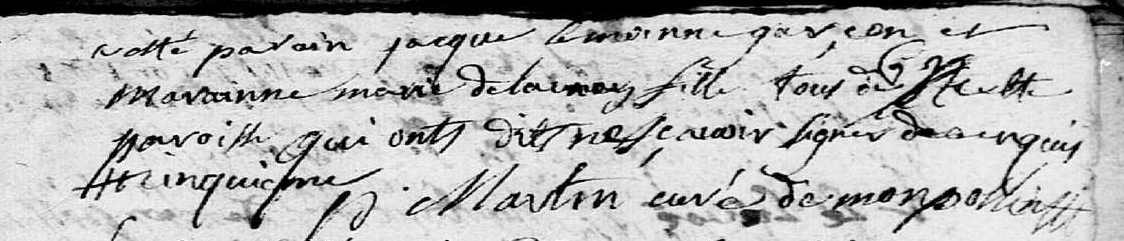 a esté parain jacque lemoinne garçon et
maroinne marie delaunay fille tous de cette
paroisse qui onts dits ne sçavoir signer de ce enquis
p. Martin curé de monpollin